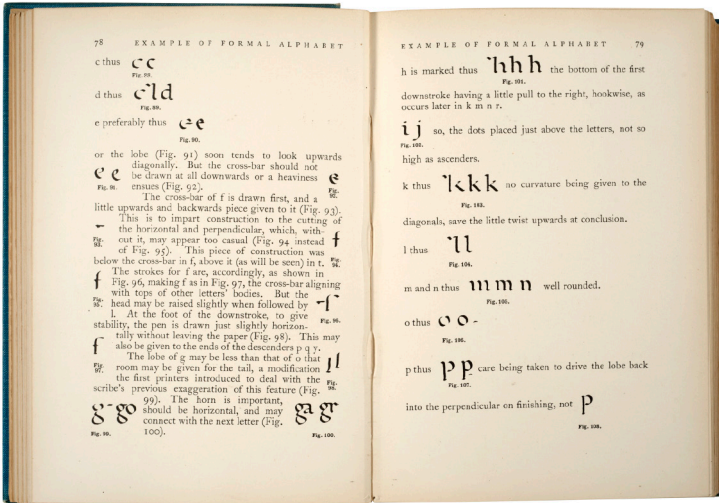 78 EXAMPLE OF FORMAL ALPHABET
c thus c c
Fig. 88.
d thus c l d
Fig. 89.
e preferably thus e e
Fig. 90.
or the lobe (Fig. 91) soon tends to look upwards
diagonally. But the cross-bar should not
e e be drawn at all downwards or a heaviness e
Fig. 91. ensues (Fig. 92). Fig. 92.
The cross-bar of f is drawn first, and a
little upwards and backwards piece given to it (Fig. 93).
This is to impart construction to the cutting of
the horizontal and perpendicular, which, with-
Fig. 93. out it, may appear too casual (Fig. 94 instead f
of Fig. 95). This piece of construction was
below the cross-bar in f, above it (as will be seen) in t. Fig. 94.
f The strokes for f are, accordingly, as shown in
Fig. 96, making f as in Fig. 97, the cross-bar aligning
Fig. 95. with tops of other letters' bodies. But the
head may be raised slightly when followed by
l. At the foot of the downstroke, to give Fig. 96.
stability, the pen is drawn just slightly horizon-
f tally without leaving the paper (Fig. 98). This may
also be given to the ends of the descenders p q y.
Fig. 97. The lobe of g may be less than that of o that
room may be given for the tail, a modification
the first printers introduced to deal with the Fig. 98.
scribe's previous exaggeration of this feature (Fig.
99). The horn is important,
g- go should be horizontal, and may ga gr
connect with the next letter (Fig.
Fig. 99. 100). Fig. 100.
EXAMPLE OF FORMAL ALPHABET 79
h is marked thus h h h the bottom of the first
Fig. 101.
downstroke having a little pull to the right, hookwise, as
occurs later in k m n r.
i j so, the dots placed just above the letters, not so
Fig. 102.
high as ascenders.
k thus k k k no curvature being given to the
Fig. 103.
diagonals, save the little twist upwards at conclusion.
l thus l l
Fig. 104.
m and n thus m m n well rounded.
Fig. 105.
o thus o o -
Fig. 106.
p thus p p care being taken to drive the lobe back
Fig. 107.
into the perpendicular on finishing, not p
Fig. 108.